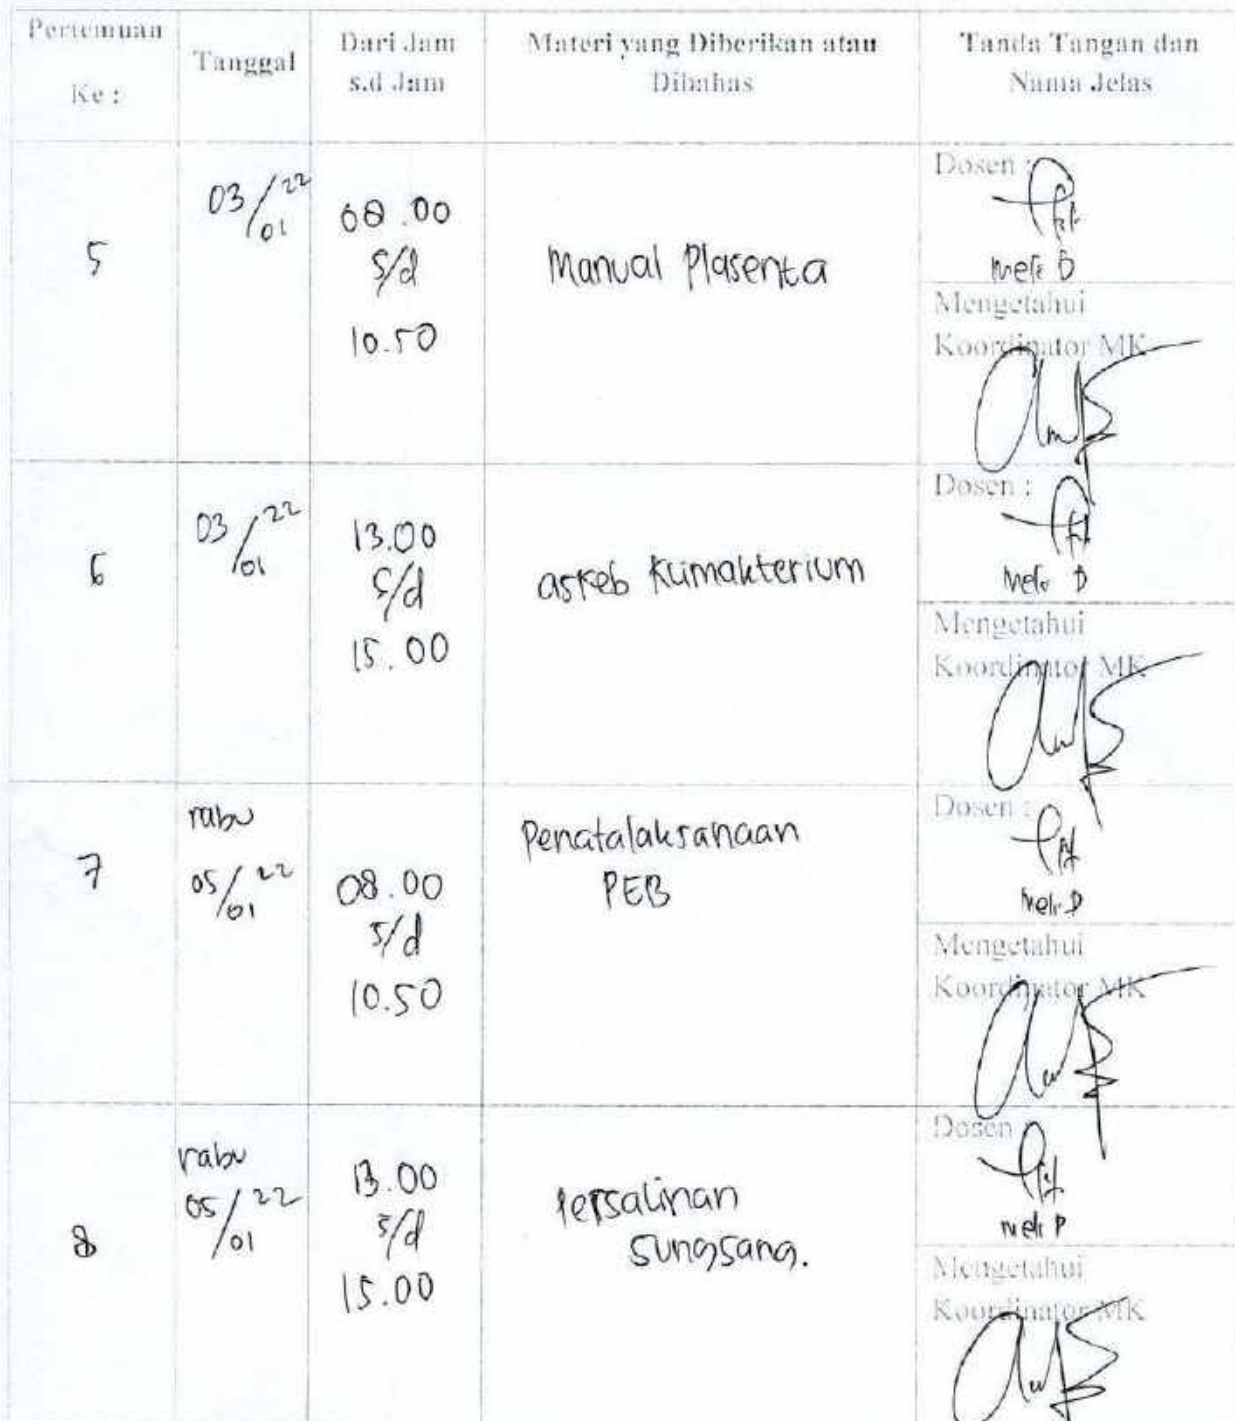 Pertemuan
Ke :
Tanggal
Dari Jam
s.d Jam
Materi yang Diberikan atau
Dibahas
Tanda Tangan dan
Nama Jelas
5
03/01 22
08.00
s/d
10.50
Manual Plasenta
Dosen :
Meli D
Mengetahui
Koordinator MK
6
03/01 22
13.00
s/d
15.00
askeb Kumakterium
Dosen :
Meli D
Mengetahui
Koordinator MK
7
rabu
05/01 22
08.00
s/d
10.50
Penatalaksanaan
PEB
Dosen :
Meli D
Mengetahui
Koordinator MK
8
rabu
05/01 22
13.00
s/d
15.00
Persalinan
Sungsang.
Dosen
Meli D
Mengetahui
Koordinator MK